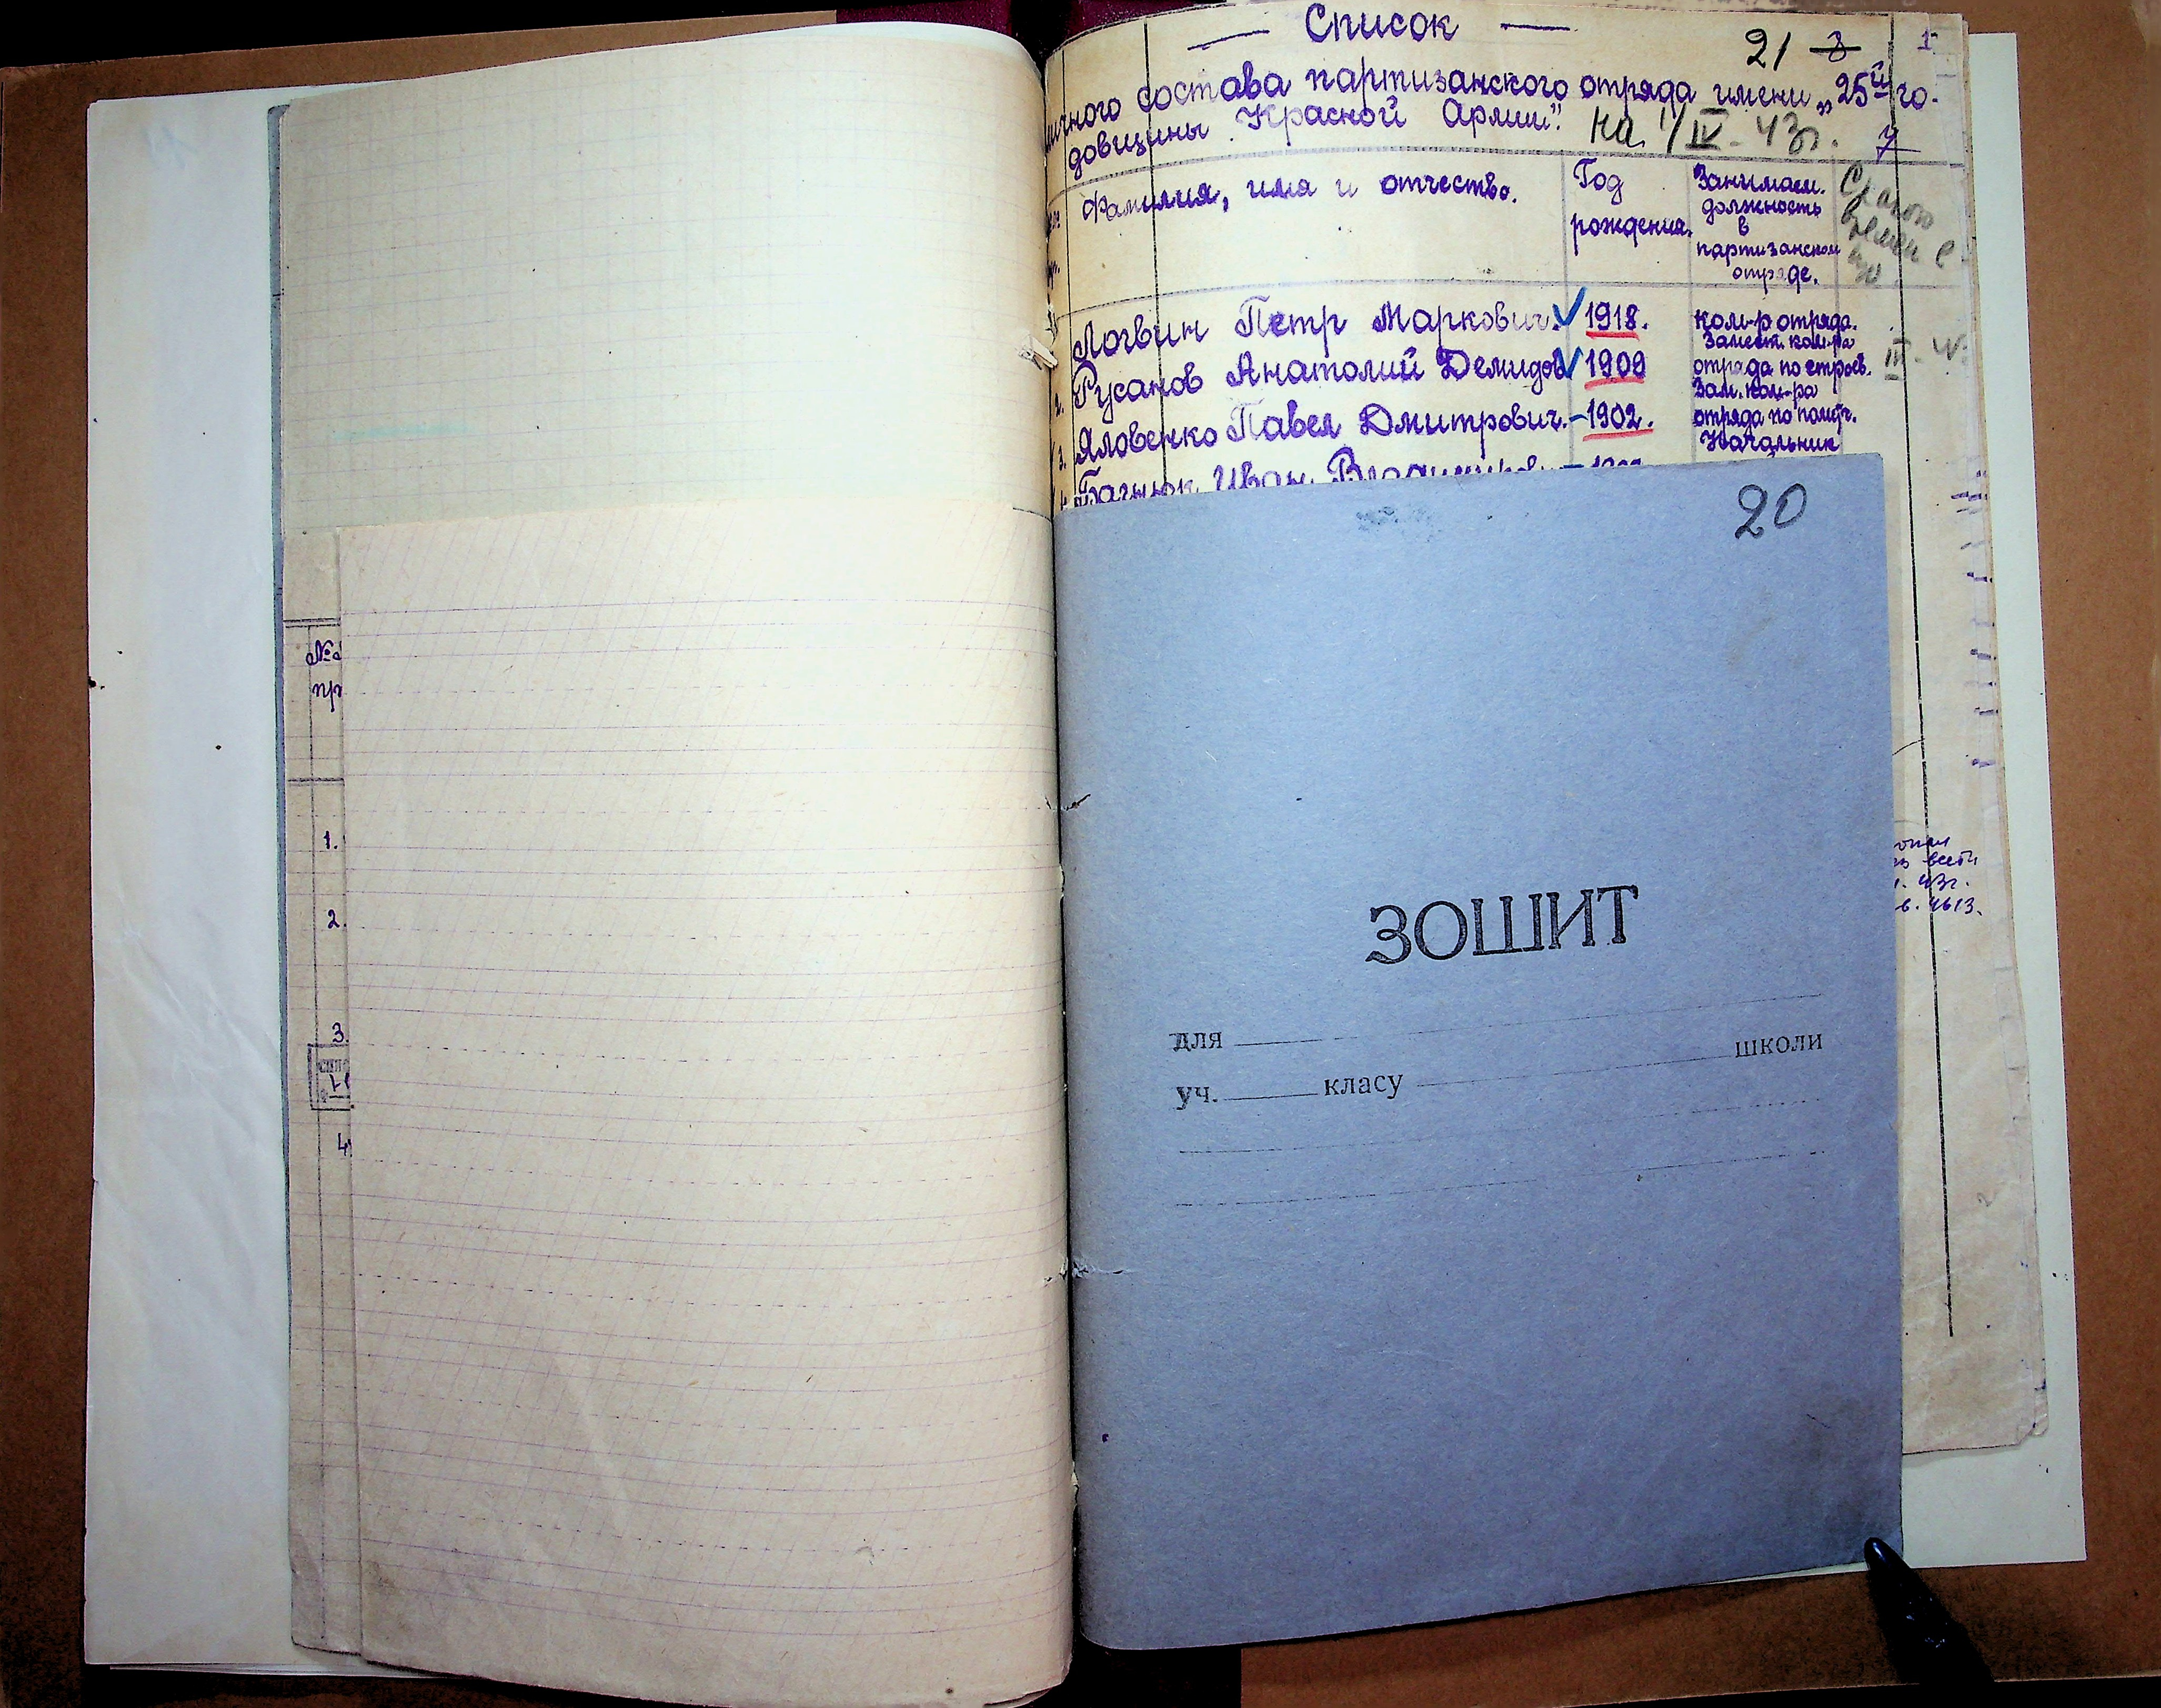 №№
пр
1.
2.
3.
4
— Список —
21 3 1
личного состава партизанского отряда имени „25й го-
довщины Красной Армии". на 1/IV - 43г. 7
Фамилия, имя и отчество.
Год
рождения.
Занимаем.
должность
в
партизанском
отряде.
С какого
времени
Логвин Петр Маркович. 1918. ком-р отряда.
2. Русанов Анатолий Демидов 1909 Замест. ком-ра
отряда по строев.
3. Яловенко Павел Дмитрович. - 1902. Зам. ком-ра
отряда по полит.
Иван Начальник
20
ЗОШИТ
для
уч. класу школи
43г.